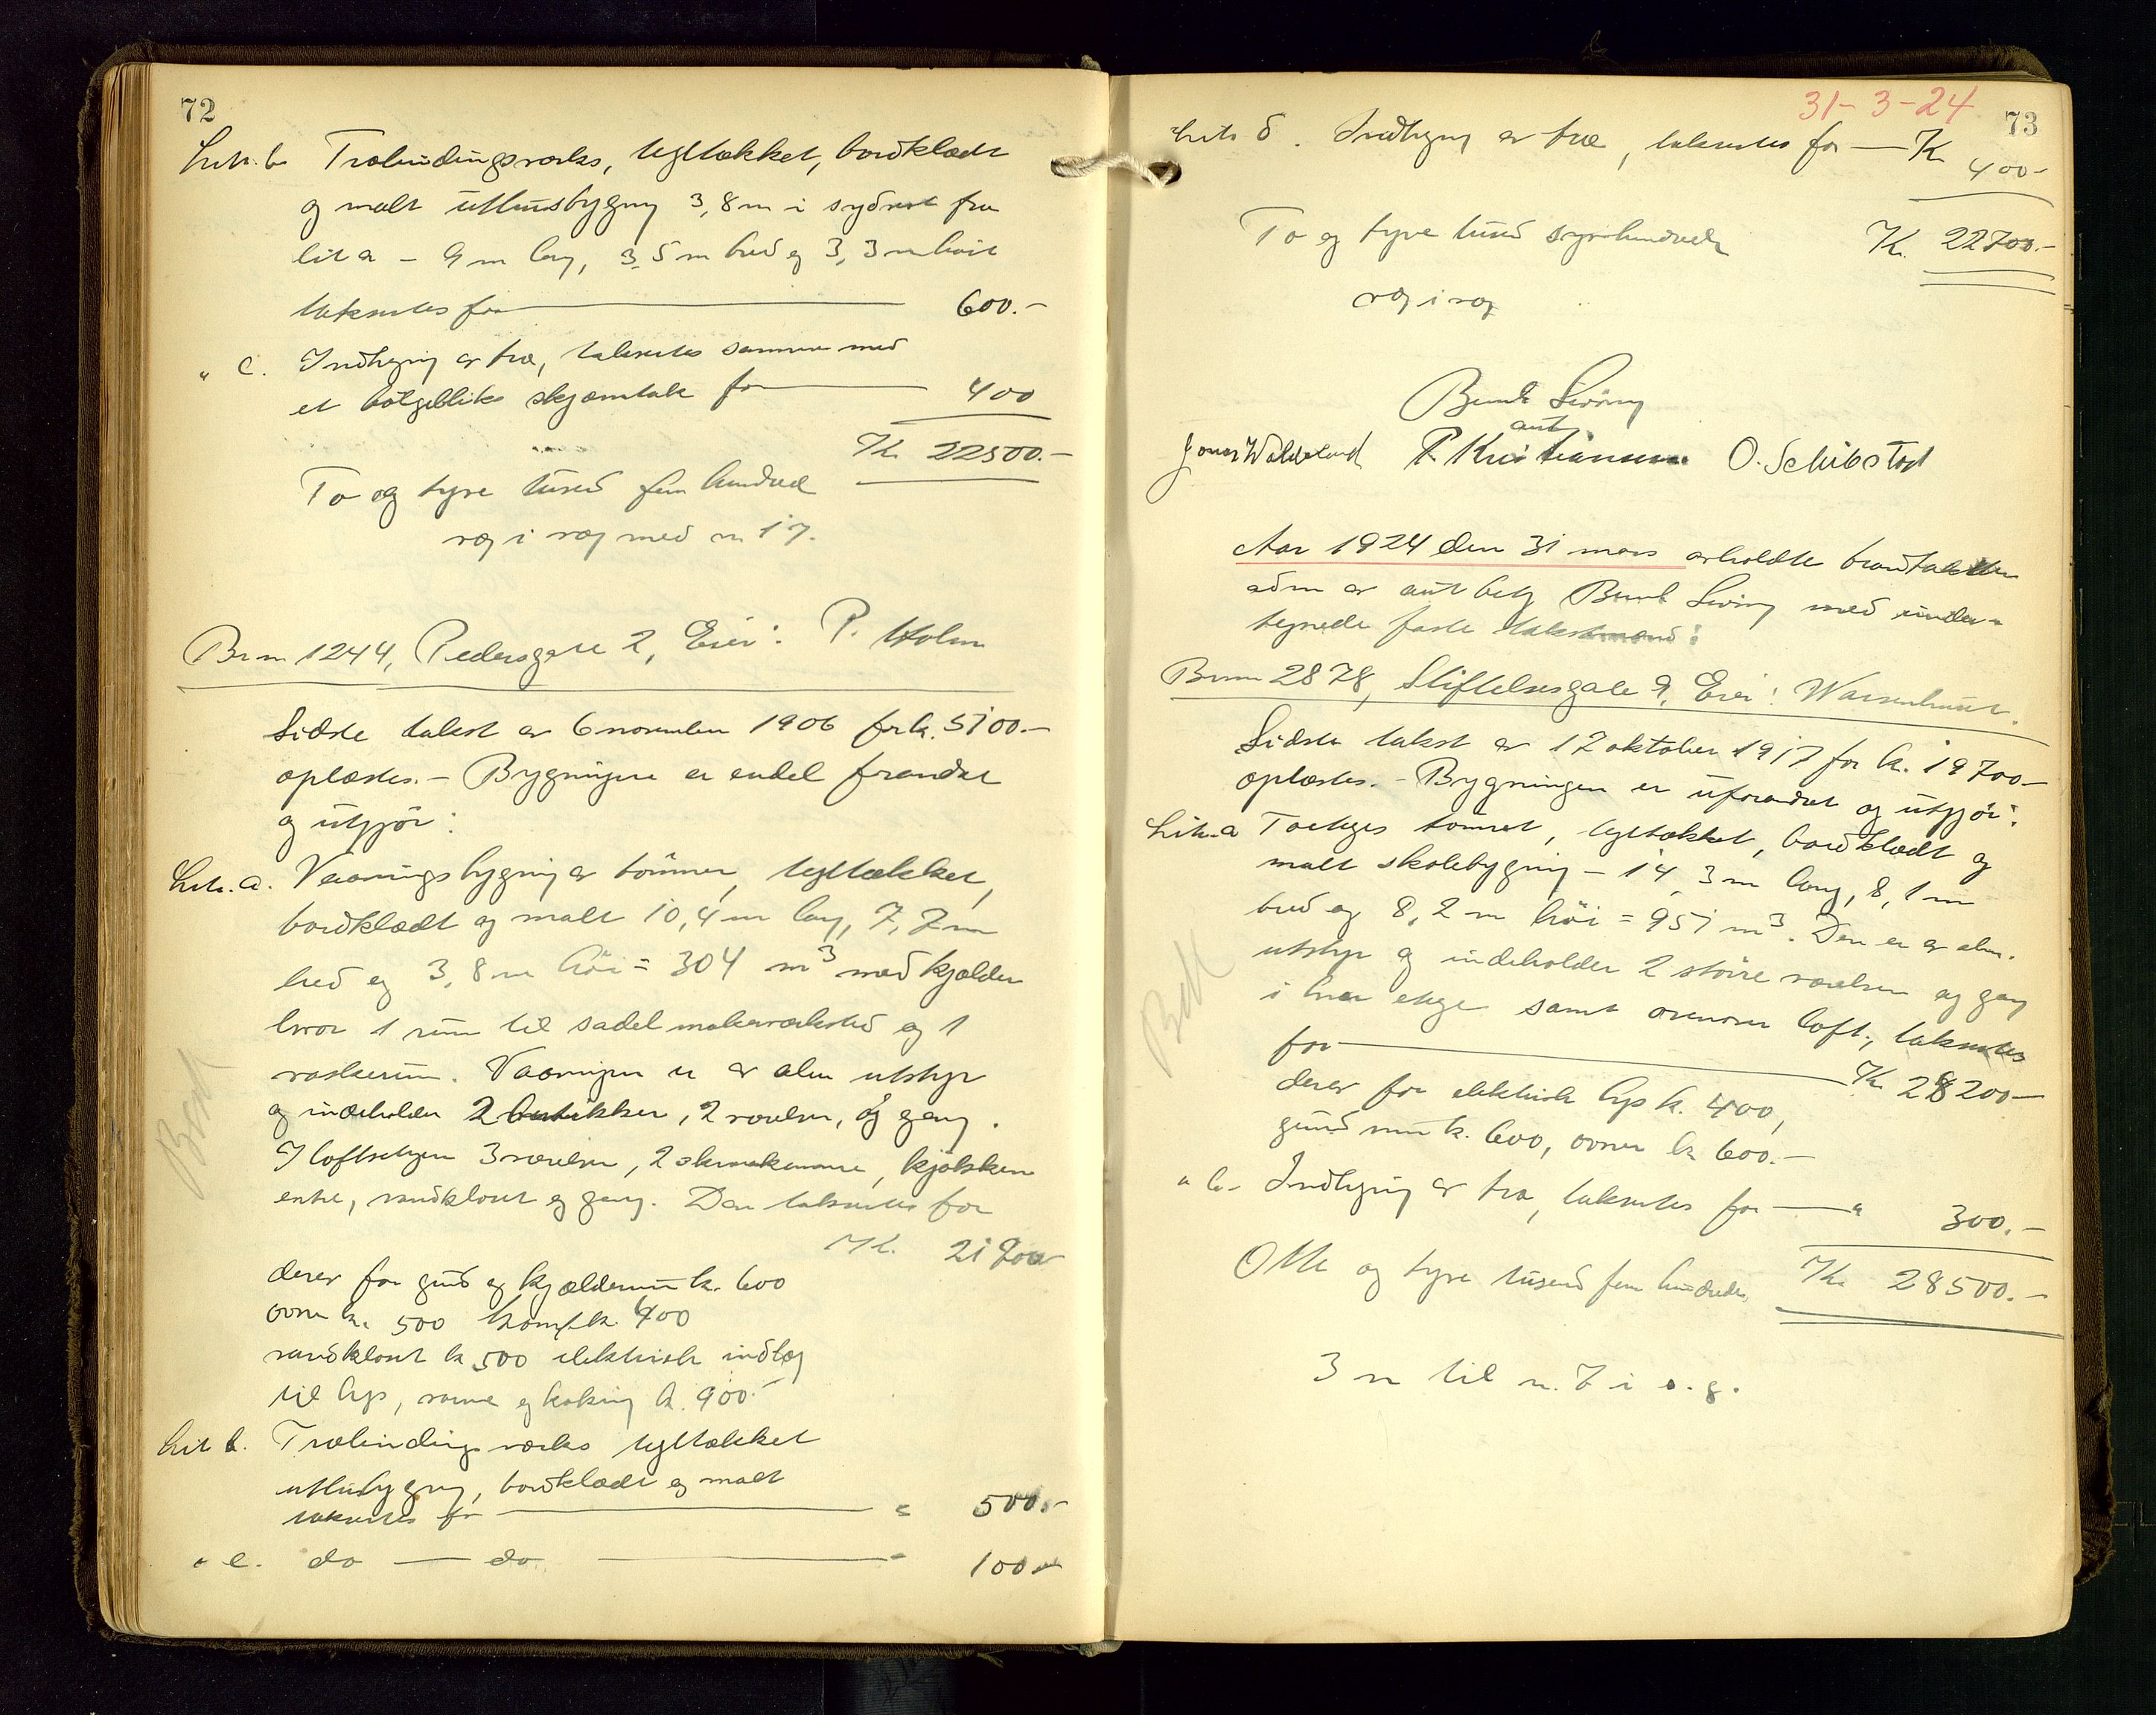 72
Litr. b Træbindingsværks, tegltækket, bordklædt
og malt uthusbygning 3,8 m i sydvest fra
lit a - 9 m lang, 3,5 m bred og 3,3 m høit
takseres for 600.-
" c. Indhegning av træ, takseres sammen med
et skjæmtak for 400
Kr. 22500.-
To og tyve tusind fem hundrede
væg i væg med nr 17.
Br nr 1244, Pedersgate 2, Eier: P. Holm
Sidste takst av 6 november 1906 for kr. 5100.-
oplæstes. - Bygningene er endel forandret
og utgjør:
Litr. a. Vaaningsbygning av tømmer, tegltækket,
bordklædt og malt 10,4 m lang, 7,7 m
bred og 3,8 m høi = 304 m3 med kjælder
hvor 1 rum til sadelmakerverksted og 1
vaskerum. Vaaningen er av alm utstyr
og indeholder 2 butikker, 2 værelser, og gang.
I loftsetagen 3 værelser, 2 skraakamre, kjøkken
entre, vandkloset og gang. Den takseres for
Kr. 21700
derav for grund og kjælderrum kr. 600
ovne kr. 500 komf. kr. 400
vandkloset kr 500 elektrisk indlæg
til lys, varme og koking kr. 900.-
Lit b. Træbindingsværks tegltækket
uthusbygning, bordklædt og malt
takseres for " 500.-
" c. do — do " 100.-
Bedt
31-3-24
73
Litr d. Indhegning av træ, takseres for — Kr 400-
To og tyve tusind syvhundrede Kr. 22700.-
væg i væg
Bernh Sivring
aut
Jonas Waldeland P. Kristiansen O. Schibstad
Aar 1924 den 31 mars avholdtes brandtakster
adm av aut bety Bernh Sivring med under-
tegnede faste takstmænd:
Br nr 2878, Stiftelsesgate 9, Eier: Waisenhuset.
Sidste takst av 12 oktober 1917 for kr. 19700-
oplæstes. - Bygningen er uforandret og utgjør:
Litr. a Toetages tømret, tegltækket, bordklædt og
malt skolebygning - 14,3 m lang, 8,1 m
bred og 8,2 m høi = 951 m3. Den er av alm.
utstyr og indeholder 2 større værelser og gang
i hver etage samt ovenover loft, takseres
for Kr 28200-
derav for elektrisk lys kr. 400,
grund mur kr. 600, ovner kr 600.-
" b- Indhegning av træ, takseres for — " 300.-
Otte og tyve tusend fem hundrede Kr 28500.-
3 m til nr. 7 i s. g.
Bedt